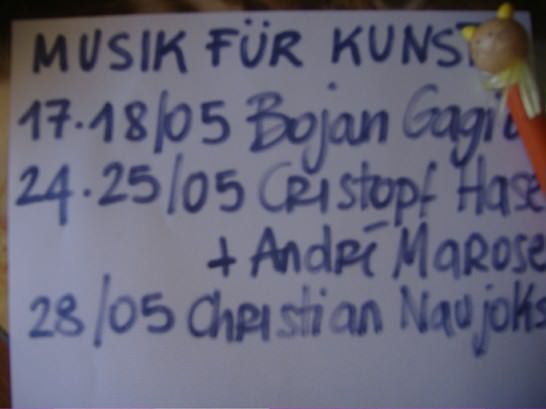 MUSIK FÜR KUNST
17.18/05 Bojan
24.25/05 CRIstopf Hase
+ André MaRose
28/05 ChRIstian Naujoks